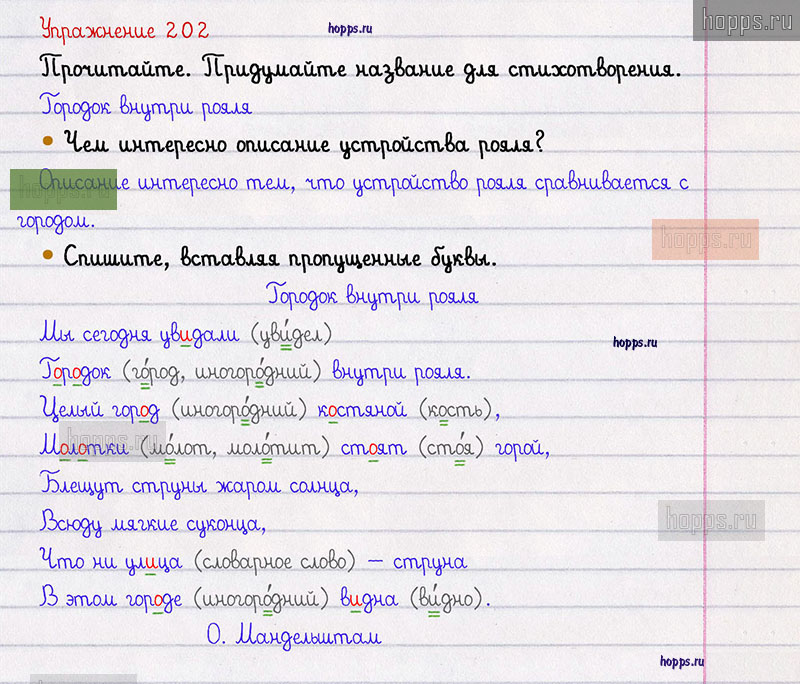 hopps.ru
Упражнение 202
hopps.ru
Прочитайте. Придумайте название для стихотворения.
Городок внутри рояля
• Чем интересно описание устройства рояля?
Описание интересно тем, что устройство рояля сравнивается с
hopps.ru
городом.
hopps.ru
• Спишите, вставляя пропущенные буквы.
Городок внутри рояля
Мы сегодня увидали (уви́дел)
hopps.ru
Городок (го́род, иногоро́дний) внутри рояля.
Целый город (иногоро́дний) костяной (кость),
hopps.ru
Молотки (мо́лот, моло́тит) стоят (сто́я) горой,
Блещут струны жаром солнца,
hopps.ru
Всюду мягкие суконца,
Что ни улица (словарное слово) – струна
В этом городе (иногоро́дний) видна (ви́дно).
О. Мандельштам
hopps.ru